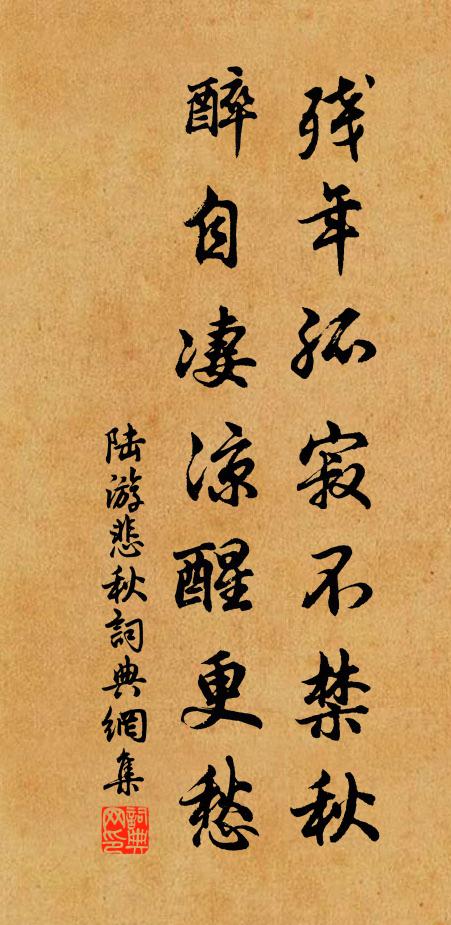 残年孤寂不禁秋
醉自凄凉醒更愁
陆游悲秋詞典網集
詞典网印